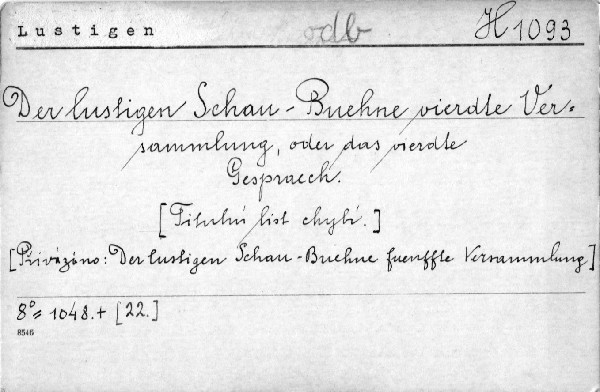 Lustigen odb H 1093
Der lustigen Schau-Buehne vierdte Ver-
sammlung, oder das vierdte
Gespraech.
[Titulní list chybí.]
[Přivázáno: Der lustigen Schau-Buehne fuenffte Versammlung]
8° = 1048. + [22.]
8546